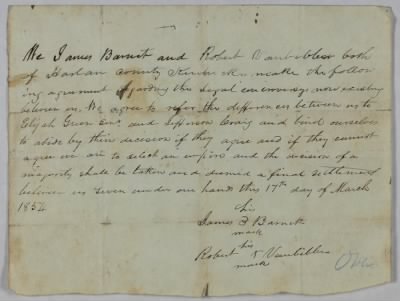 We James Barnet and Robert Vanbibber both
of Harlan County Kentucky make the follow
ing agreement regarding the Legal controversy now existing
between us, We agree to refer the differences between us to
Elijah Green Enr and Jefferson Craig and bind ourselves
to abide by their decision if they agree and if they cannot
agree we are to select an umpire and the decision of a
majority shall be taken and deemed a final settlement
between us Given under our hands this 17th day of March
1852
his
James Barnett
mark
his
Robert X Vanbibber
mark
Over